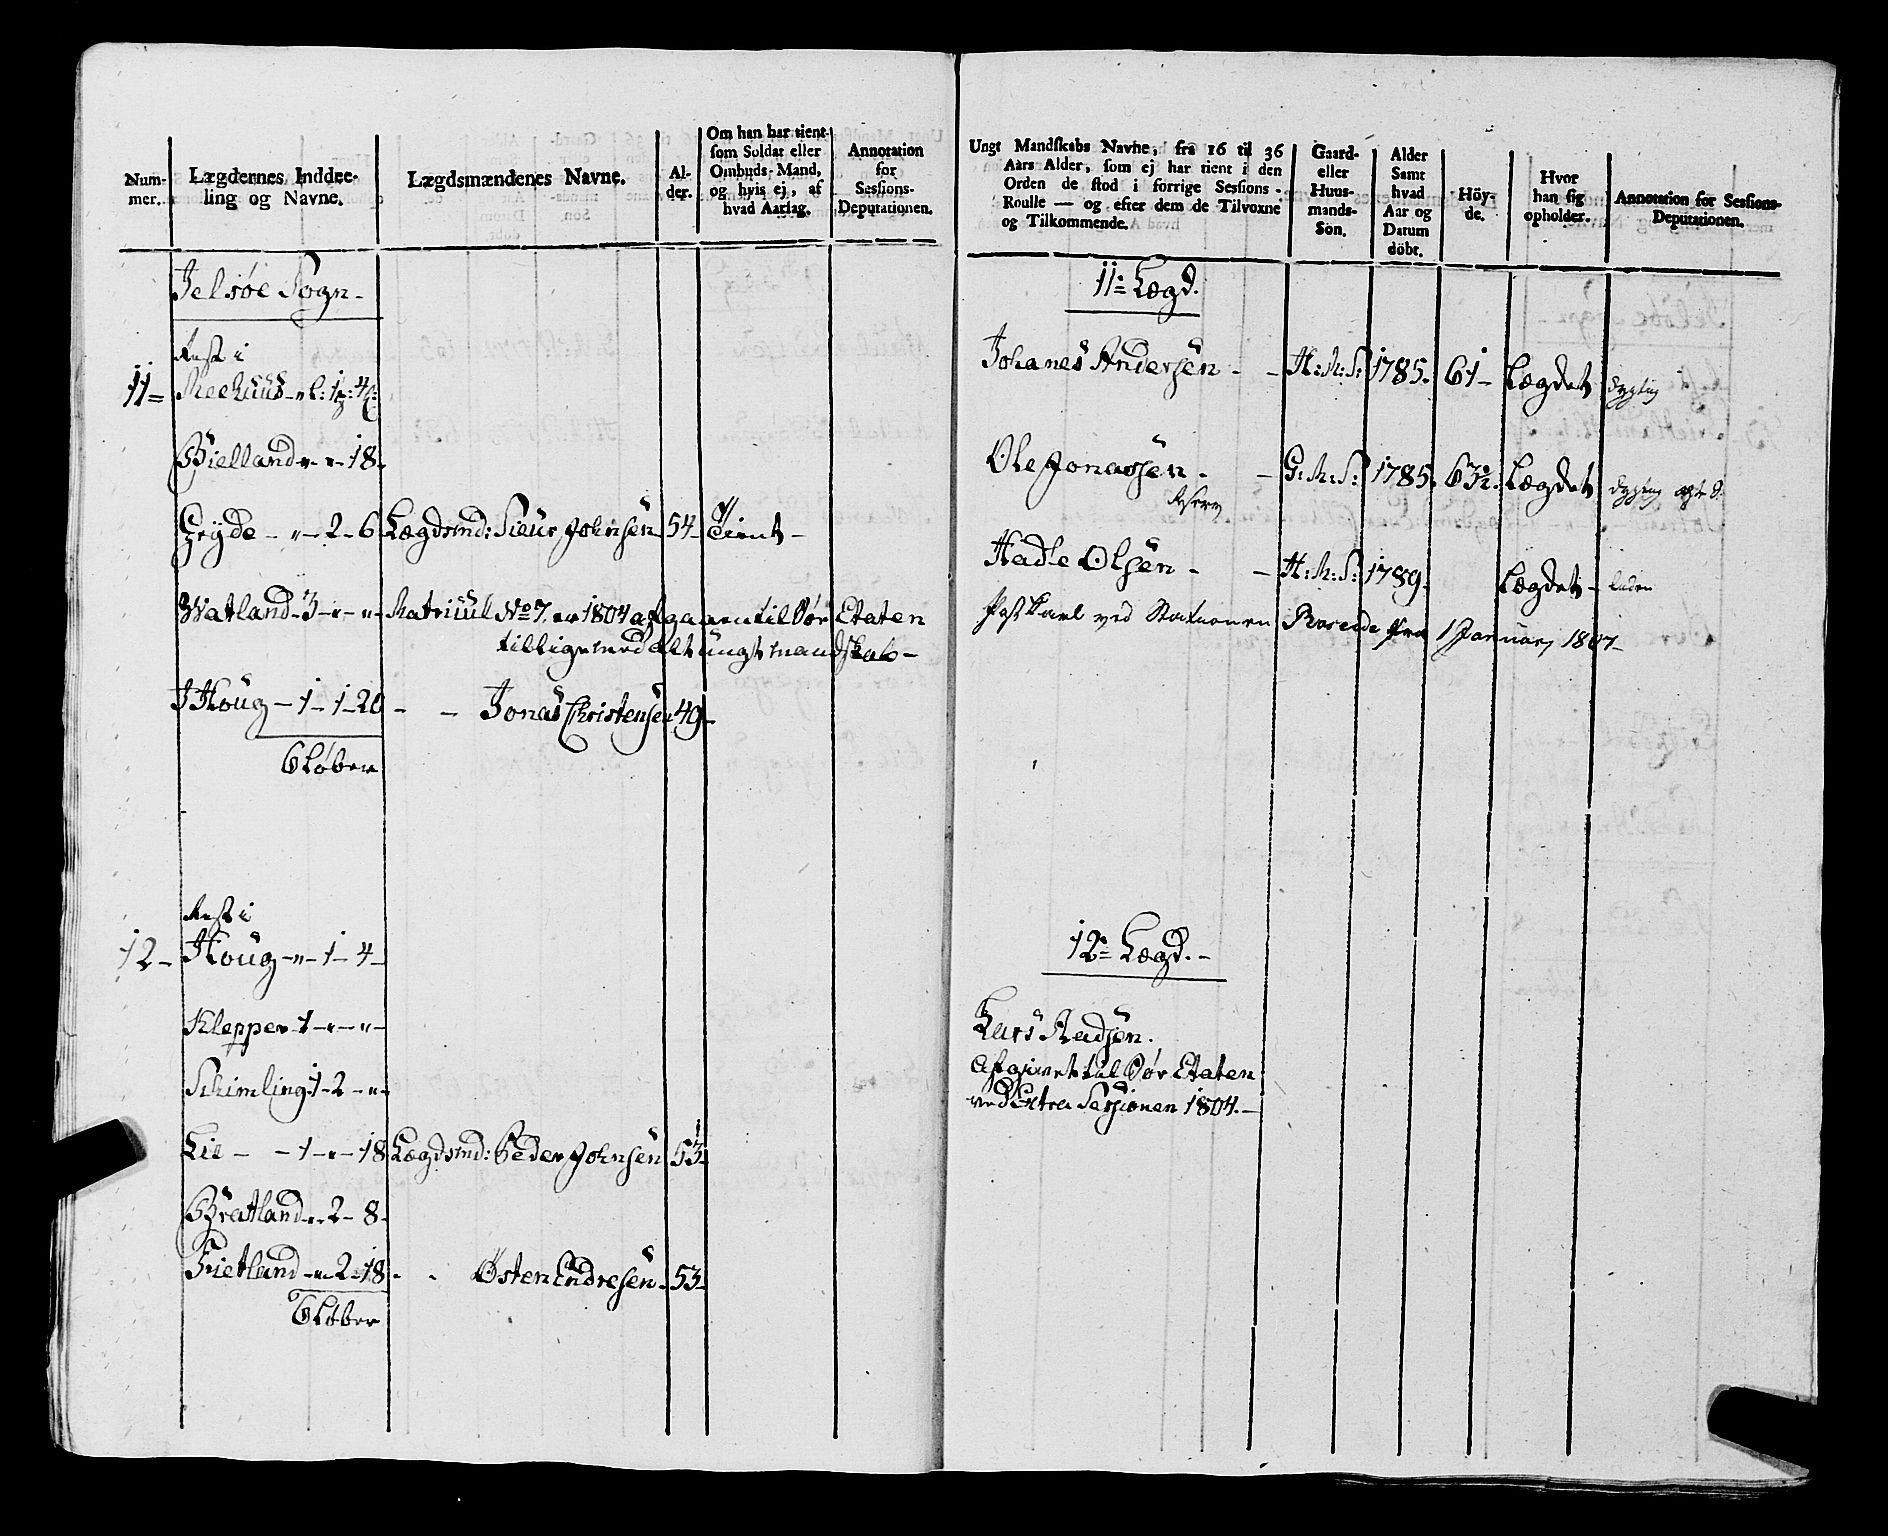 Num-
mer.
Lægdernes Inddee-
ling og Navne.
Lægdsmændenes Navne.
Al-
der.
Om han har tient
som Soldat eller
Ombuds-Mand,
og hvis ej, af
hvad Aarsag.
Annotation
for
Sessions-
Deputationen.
Jelsøe Sogn-
Rest i
11=
Bielland-"-"-18-
Gryde-"-2-6 Lægdsmd: Siur Johnsen 54- Tient-
Watland-3-"-"- Matricul No 7. er 1804 afgaaen til Søe Etaten
tilligemed alt ungt mandskab-
Houg-1-1-20 - - Jonas Christensen 49-
6 Løber
Rest i
12- Houg-"-1-4-
Klepper-1-"-"-
Schimling 1-2-"-
Lie - -1-"-18 Lægdsmd: Peder Johnsen 53-
Bratland-"-2-8-
Frietland-"-2-18 - - Østen Endresen-53-
6 Løber
Ungt Mandskabs Navne, fra 16 til 36
Aars Alder, som ej har tient i den
Orden de stod i forrige Sessions-
Roulle — og efter dem de Tilvoxne
og Tilkommende.
Gaard-
eller
Huus-
mands-
Sön.
Alder
Samt
hvad
Aar og
Datum
döbt.
Höy-
de.
Hvor
han sig
opholder.
Annotation for Sessions-
Deputationen.
11= Lægd.
Johanes Andersen - - H:M:S: 1785. 61- Lægdet dygtig
Ole Jonassen - - G:M:S: 1785. 63½. Lægdet dygtig
Reserv
Hadle Olsen - - H:M:S: 1789. Lægdet- liden
Postkarl ved Stationen fra 1 Januar, 1807-
12= Lægd.-
Lars
Afgivet til Søe Etaten
ved Extra Sessionen 1804.-